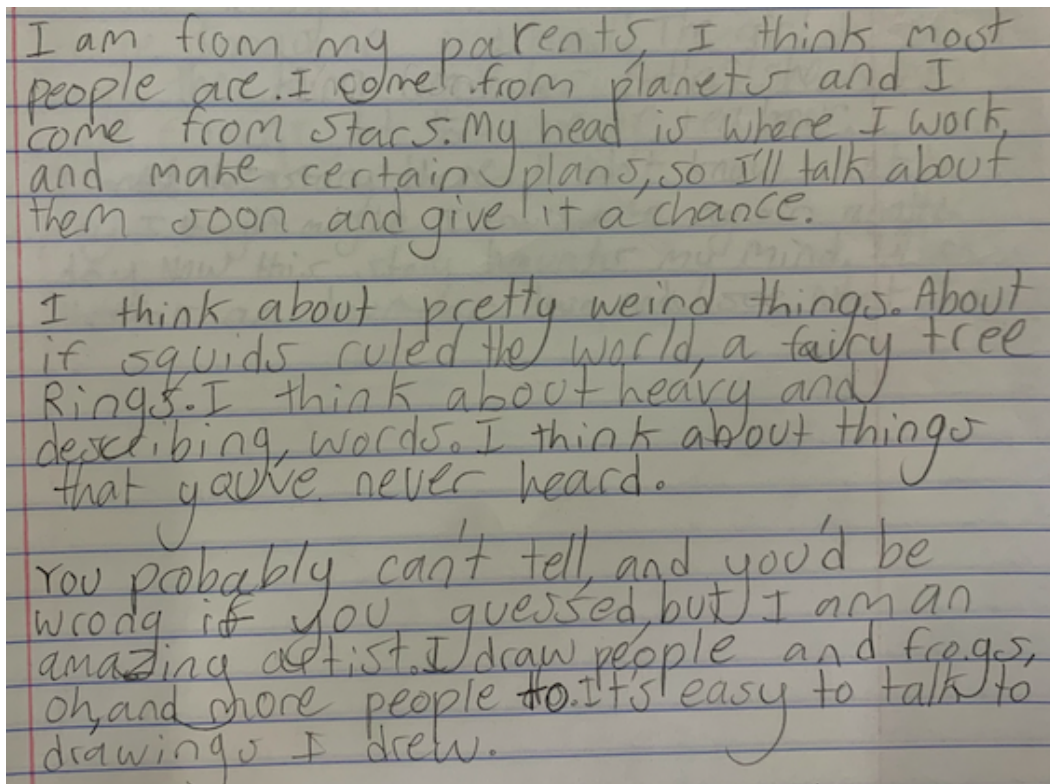 I am from my parents, I think most
people are. I come from planets and I
come from stars. My head is where I work,
and make certain plans, so I'll talk about
them soon and give it a chance.
I think about pretty weird things. About
if squids ruled the world, a fairy tree
Rings. I think about heavy and
describing, words. I think about things
that you've never heard.
You probably can't tell, and you'd be
wrong if you guessed, but I am an
amazing artist. I draw people and frogs,
oh, and more people to. It's easy to talk to
drawings I drew.